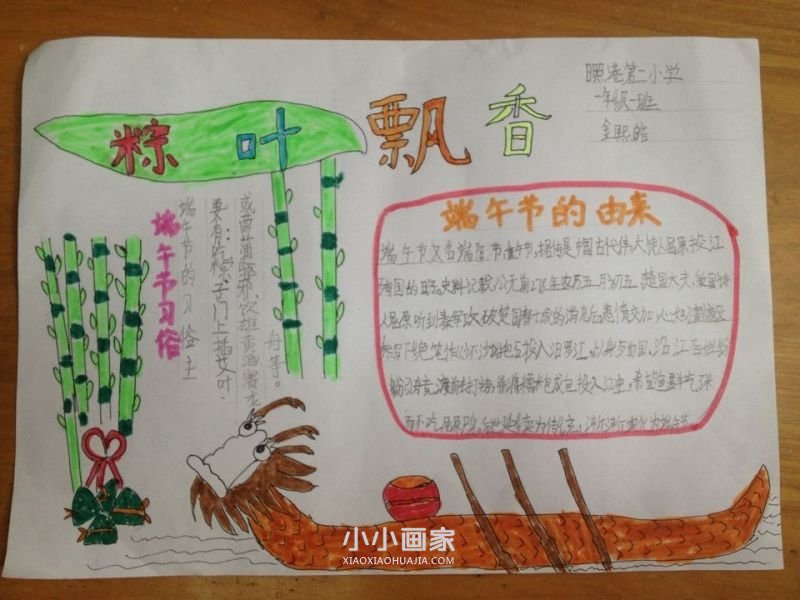 粽叶飘香
日照港第二小学
一年级一班
金熙皓
端午节习俗
端午节的习俗主
要有:吃粽子、门上插艾叶、
或菖蒲驱邪、饮雄黄酒、赛龙
舟等。
端午节的由来
端午节又名端阳节、重午节,据传是中国古代伟大诗人屈原投江
殉国的日子,史料记载,公元前278年农历五月初五,楚国大夫、爱国诗
人屈原听到秦军攻破楚国都城的消息后,悲愤交加,心如刀割
然写下绝笔作《怀沙》抱石投入汨罗江,以身殉国。沿江百姓纷
纷引舟竞渡前去打捞,并将糯米包成包投入江中,希望鱼虾吃了米
而不吃屈原,为传统,渐渐演化为端午节
小小画家
XIAOXIAOHUAJIA.COM